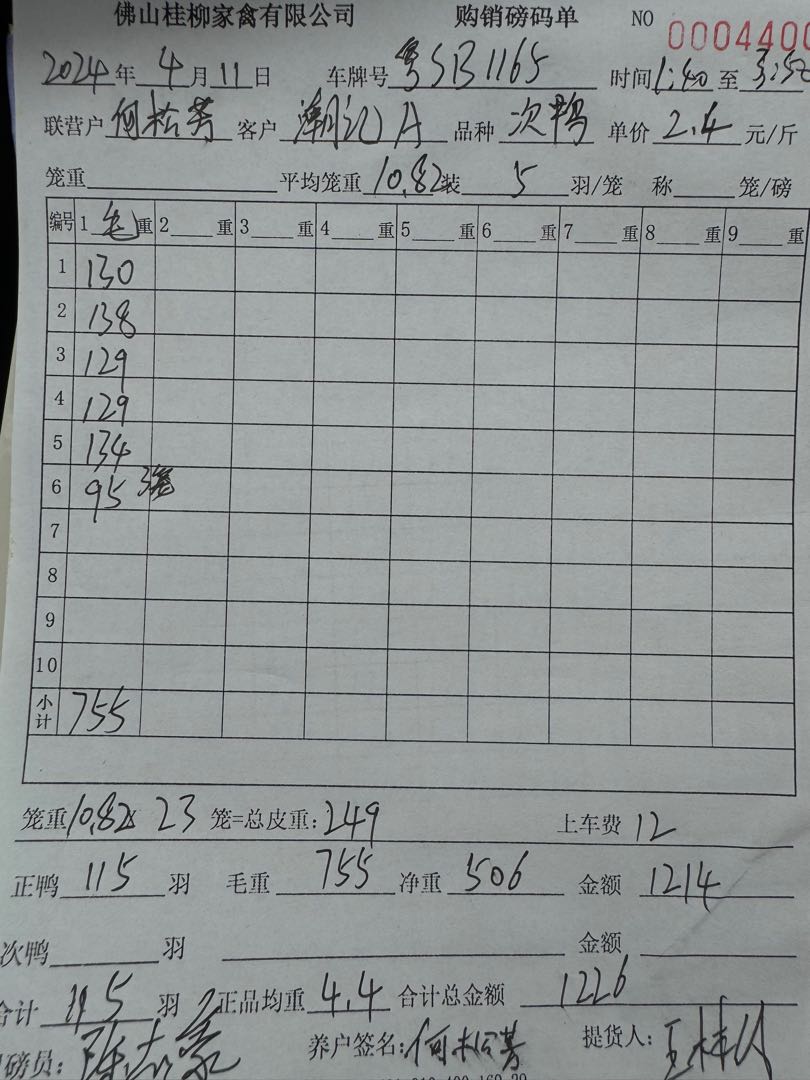 佛山桂柳家禽有限公司 购销磅码单 NO 0004400
2024年 4月 11日 车牌号 粤SB1165 时间1:40至3:50
联营户 何松芳 客户 潮记A 品种 次鸭 单价 2.4 元/斤
笼重 平均笼重 10.82 装 5 羽/笼 称 笼/磅
编号 1 毛 重 2 重 3 重 4 重 5 重 6 重 7 重 8 重 9 重
1 130
2 138
3 129
4 129
5 134
6 95 3笼
7
8
9
10
小计 755
笼重10.82 23 笼=总皮重:249 上车费 12
正鸭 115 羽 毛重 755 净重 506 金额 1214
次鸭 羽 金额
合计 115 羽 正品均重 4.4 合计总金额 1226
磅员: 养户签名:何松芳 提货人: